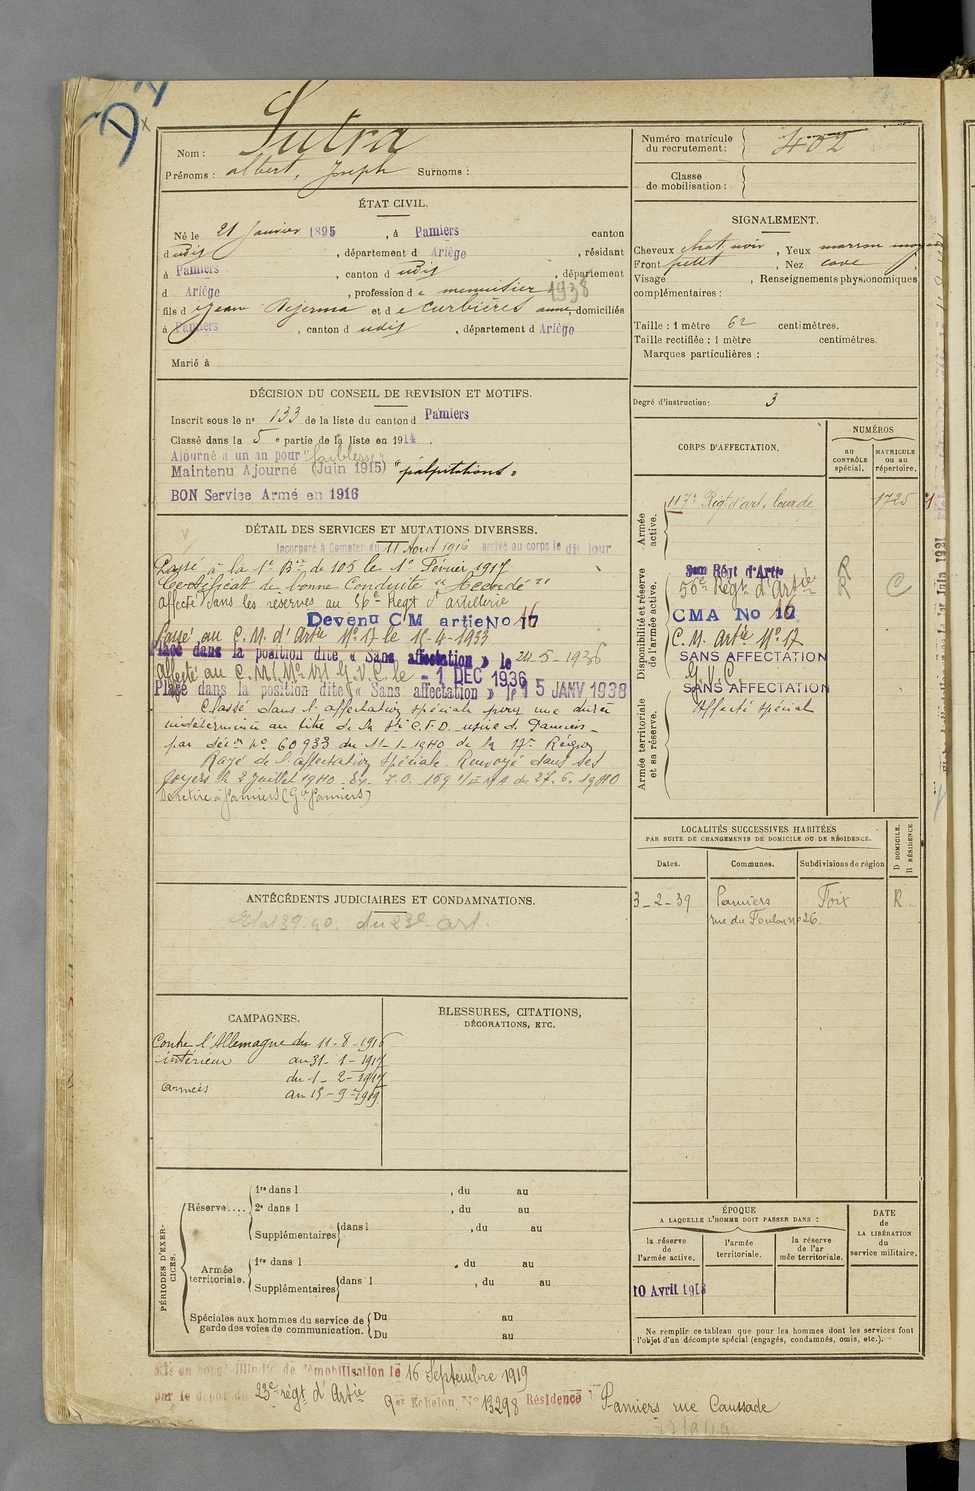 D
Nom : Sutra
Prénoms : Albert, Joseph Surnoms :
Numéro matricule du recrutement : 402
Classe de mobilisation :
ÉTAT CIVIL.
Né le 21 Janvier 1895, à Pamiers canton
d udit, département d Ariège, résidant
à Pamiers, canton d udit, département
d Ariège, profession de menuisier 1938
fils d Jean et de Curbières domiciliés
à Pamiers, canton d udit, département d Ariège
Marié à
SIGNALEMENT.
Cheveux chat. noir, Yeux marron moyen
Front petit, Nez cave,
Visage , Renseignements physionomiques
complémentaires :
Taille : 1 mètre 62 centimètres.
Taille rectifiée : 1 mètre centimètres.
Marques particulières :
Degré d'instruction : 3
DÉCISION DU CONSEIL DE REVISION ET MOTIFS.
Inscrit sous le n° 133 de la liste du canton d Pamiers
Classé dans la 5e partie de la liste en 1914.
Ajourné a un an pour "faiblesse"
Maintenu Ajourné (Juin 1915) "palpitations"
BON Service Armé en 1916
CORPS D'AFFECTATION.
NUMÉROS
AU CONTRÔLE spécial.
MATRICULE ou au répertoire.
Armée active.
117e Régt d'art. lourde 1725
Disponibilité et réserve de l'armée active.
56e Régt d'Artie
CMA No 16
C. M. Artie No 17
SANS AFFECTATION
G.V.C.
SANS AFFECTATION
Affecté spécial
Armée territoriale et sa réserve.
DÉTAIL DES SERVICES ET MUTATIONS DIVERSES.
Incorporé à Compter du 11 Août 1916 arrivé au corps le dit jour
Passé à la 1e Bie de 105 le 1er Février 1917
Certificat de bonne Conduite "Accordé"
Affecté dans les réserves au 56e Régt d'artillerie
Devenu C M artie No 16
Passé au C. M. d'Artie No 17 le 15-4-1933
Placé dans la position dite « Sans affectation » le 24-5-1936
Affecté au C. M. I. G.V.C. le - 1 DEC 1936
Placé dans la position dite « Sans affectation » le 15 JANV 1938
Classé dans l'affectation spéciale pour une durée
indéterminée au titre de la usine de Pamiers
par déc. No 60933 du 11-1-1940 de la 17e Région
Rayé de l'affectation spéciale. Renvoyé dans ses
foyers le 2 Juillet 1940.
se retire à Pamiers
LOCALITÉS SUCCESSIVES HABITÉES
PAR SUITE DE CHANGEMENTS DE DOMICILE OU DE RÉSIDENCE.
D DOMICILE. R RÉSIDENCE.
Dates. Communes. Subdivisions de région
3-2-39 Pamiers Foix R
rue du Foulon 26.
ANTÉCÉDENTS JUDICIAIRES ET CONDAMNATIONS.
CAMPAGNES.
Contre l'Allemagne du 11-8-1916
intérieur au 31-1-1917
du 1-2-1917
armées au 15-9-1919
BLESSURES, CITATIONS, DÉCORATIONS, ETC.
PÉRIODES D'EXERCICES.
Réserve.... 1re dans l , du au
2e dans l , du au
Supplémentaires dans l , du au
Armée territoriale. 1re dans l , du au
Supplémentaires dans l , du au
Spéciales aux hommes du service de garde des voies de communication. Du au
Du au
ÉPOQUE
A LAQUELLE L'HOMME DOIT PASSER DANS :
la réserve de l'armée active.
l'armée territoriale.
la réserve de l'armée territoriale.
DATE de LA LIBÉRATION du service militaire.
10 Avril 1918
Ne remplir ce tableau que pour les hommes dont les services font
l'objet d'un décompte spécial (engagés, condamnés, omis, etc.).
Mis en congé illimité de démobilisation le 16 Septembre 1919
par le dépôt du 23e régt d'Artie 9er Echelon No 13298 Résidence Pamiers rue Caussade